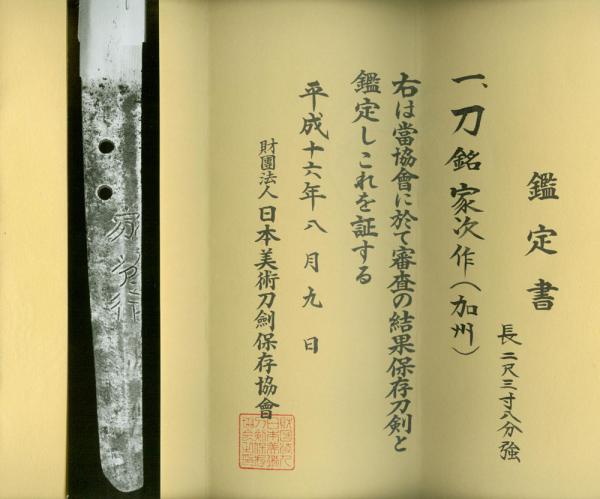 鑑定書
一、刀 銘 家次作(加州)
長 二尺三寸八分強
右は當協會に於て審査の結果保存刀剣と
鑑定しこれを証する
平成十六年八月九日
財團法人日本美術刀劍保存協會
家次作